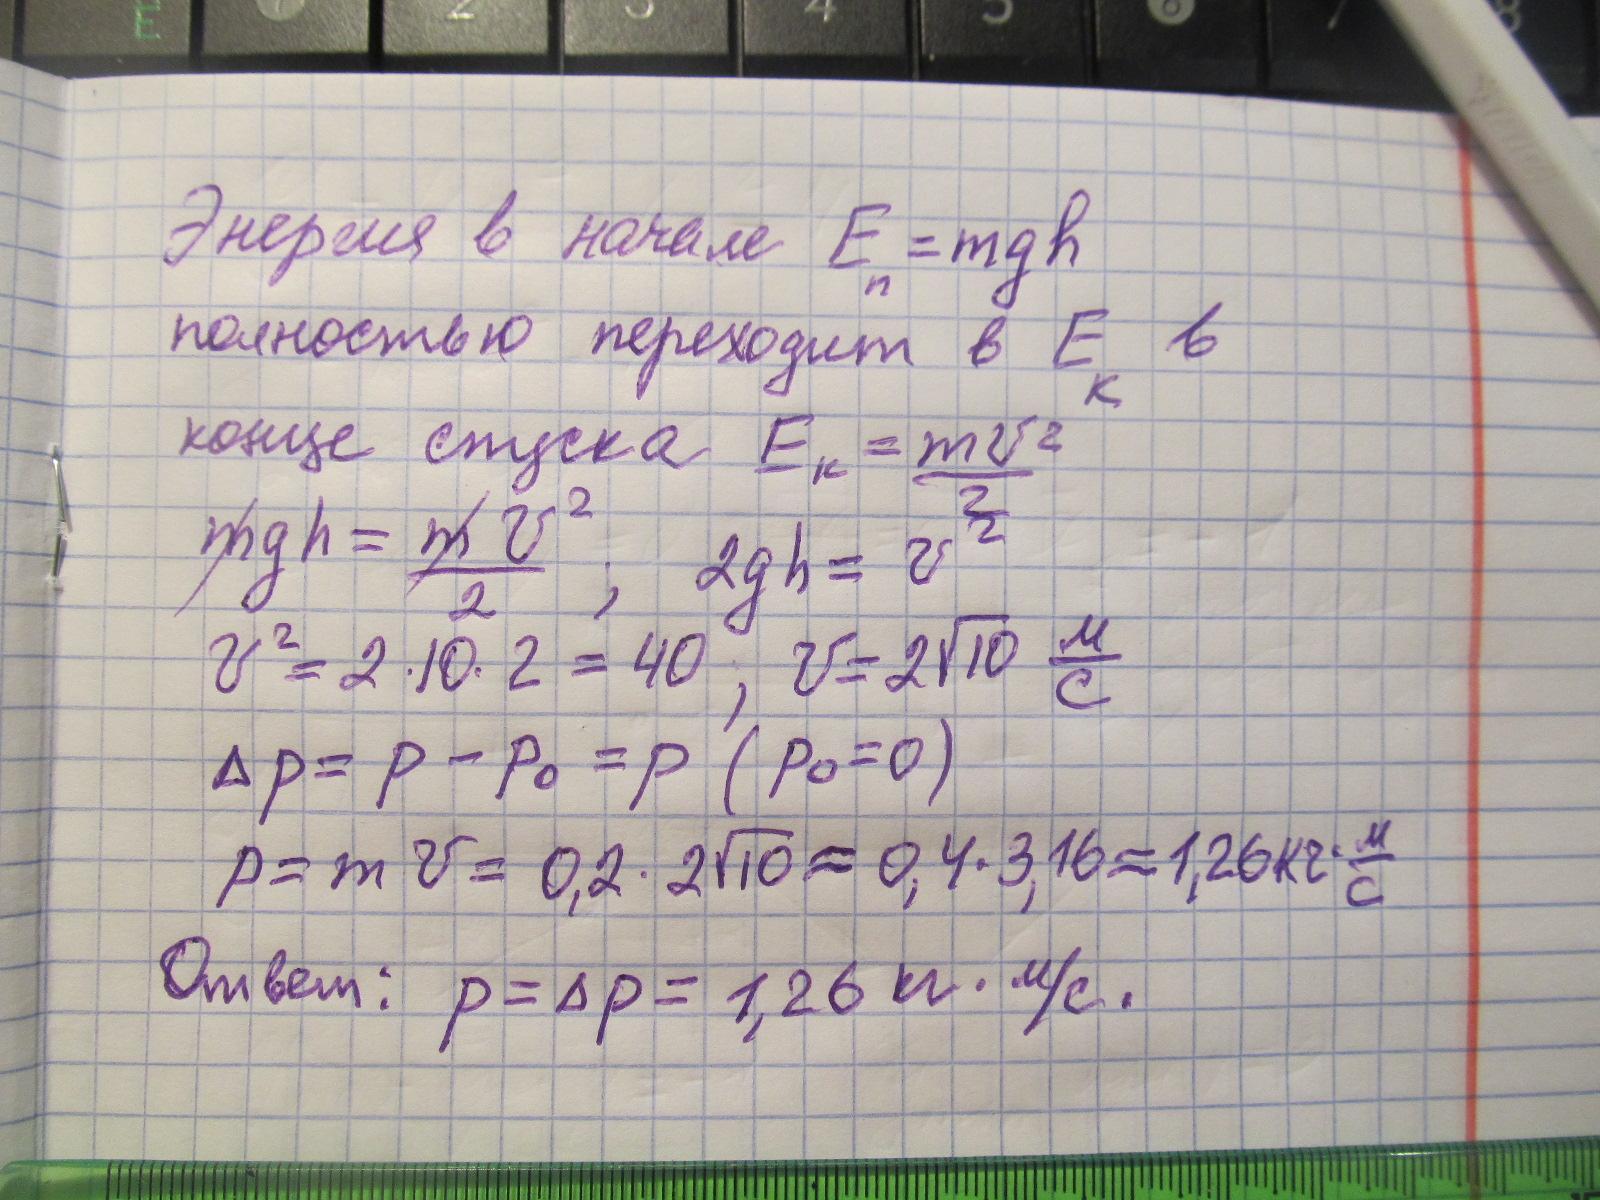 E 1 2 3 4 5 6 7 8
Энергия в начале Eп = mgh
полностью переходит в Eк в
конце спуска Eк = mv²/2
mgh = mv²/2 ; 2gh = v²
v² = 2·10·2 = 40 ; v = 2√10 м/с
Δp = p - p₀ = p (p₀ = 0)
p = mv = 0,2·2√10 ≈ 0,4·3,16 ≈ 1,26 кг·м/с
Ответ: p = Δp = 1,26 кг·м/с.